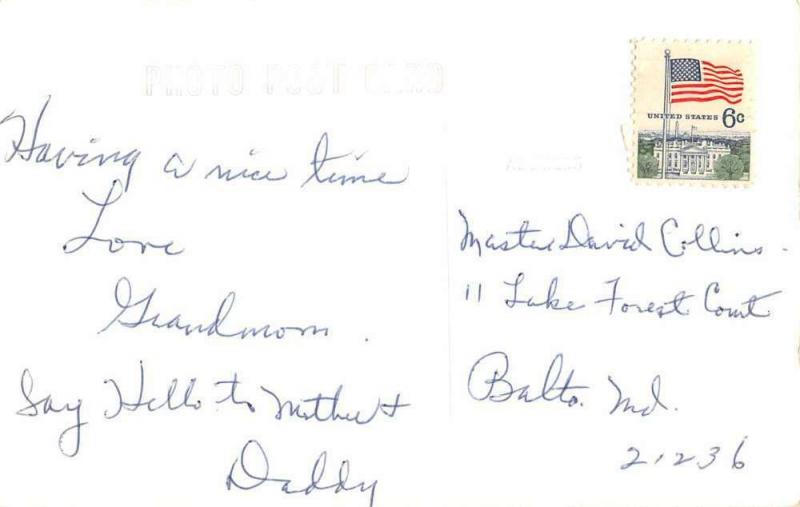 PHOTO POST CARD
UNITED STATES 6c
ADDRESS
Having a nice time
Love
Grandmom.
Say Hello to Mother +
Daddy
Master David Collins.
11 Lake Forest Court
Balto. Md.
21236